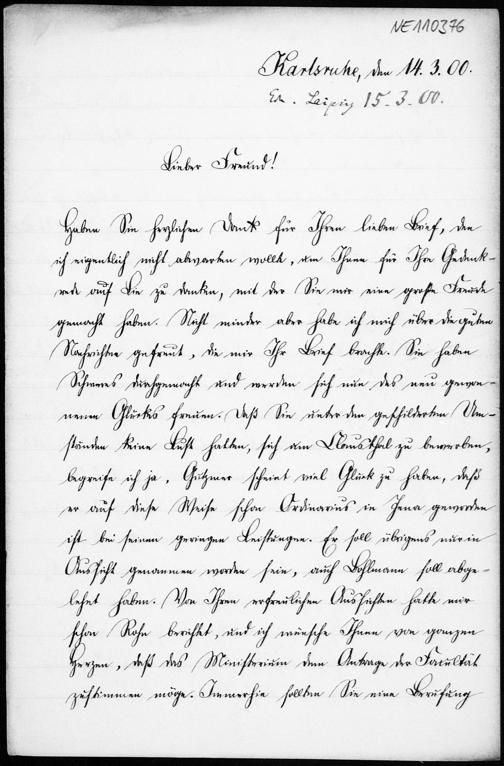 NE110376
Karlsruhe, den 14.3.00.
Ed. Leipzig 15.3.00.
Lieber Freund!
Haben Sie herzlichen Dank für Ihren lieben Brief, den
ich eigentlich nicht abwarten wollte, um Ihnen für Ihre Gedenk-
rede auf Lie zu danken, mit der Sie mir eine große Freude
gemacht haben. Nicht minder aber habe ich mich über die guten
Nachrichten gefreut, die mir Ihr Brief brachte. Sie haben
Schweres durchgemacht und werden sich nun des neu gewon-
nenen Glücks freuen. Daß Sie unter den geschilderten Um-
ständen keine Lust hatten, sich um Clausthal zu bewerben,
begreife ich ja. Gutzmer scheint viel Glück zu haben, daß
er auf diese Weise schon Ordinarius in Jena geworden
ist bei seinen geringen Leistungen. Er soll übrigens nur in
Aussicht genommen worden sein, auch Bohlmann soll abge-
lehnt haben. Von Ihren erfreulichen Aussichten hatte mir
schon Rohn berichtet, und ich wünsche Ihnen von ganzem
Herzen, daß das Ministerium dem Antrage der Facultät
zustimmen möge. Immerhin sollten Sie eine Berufung